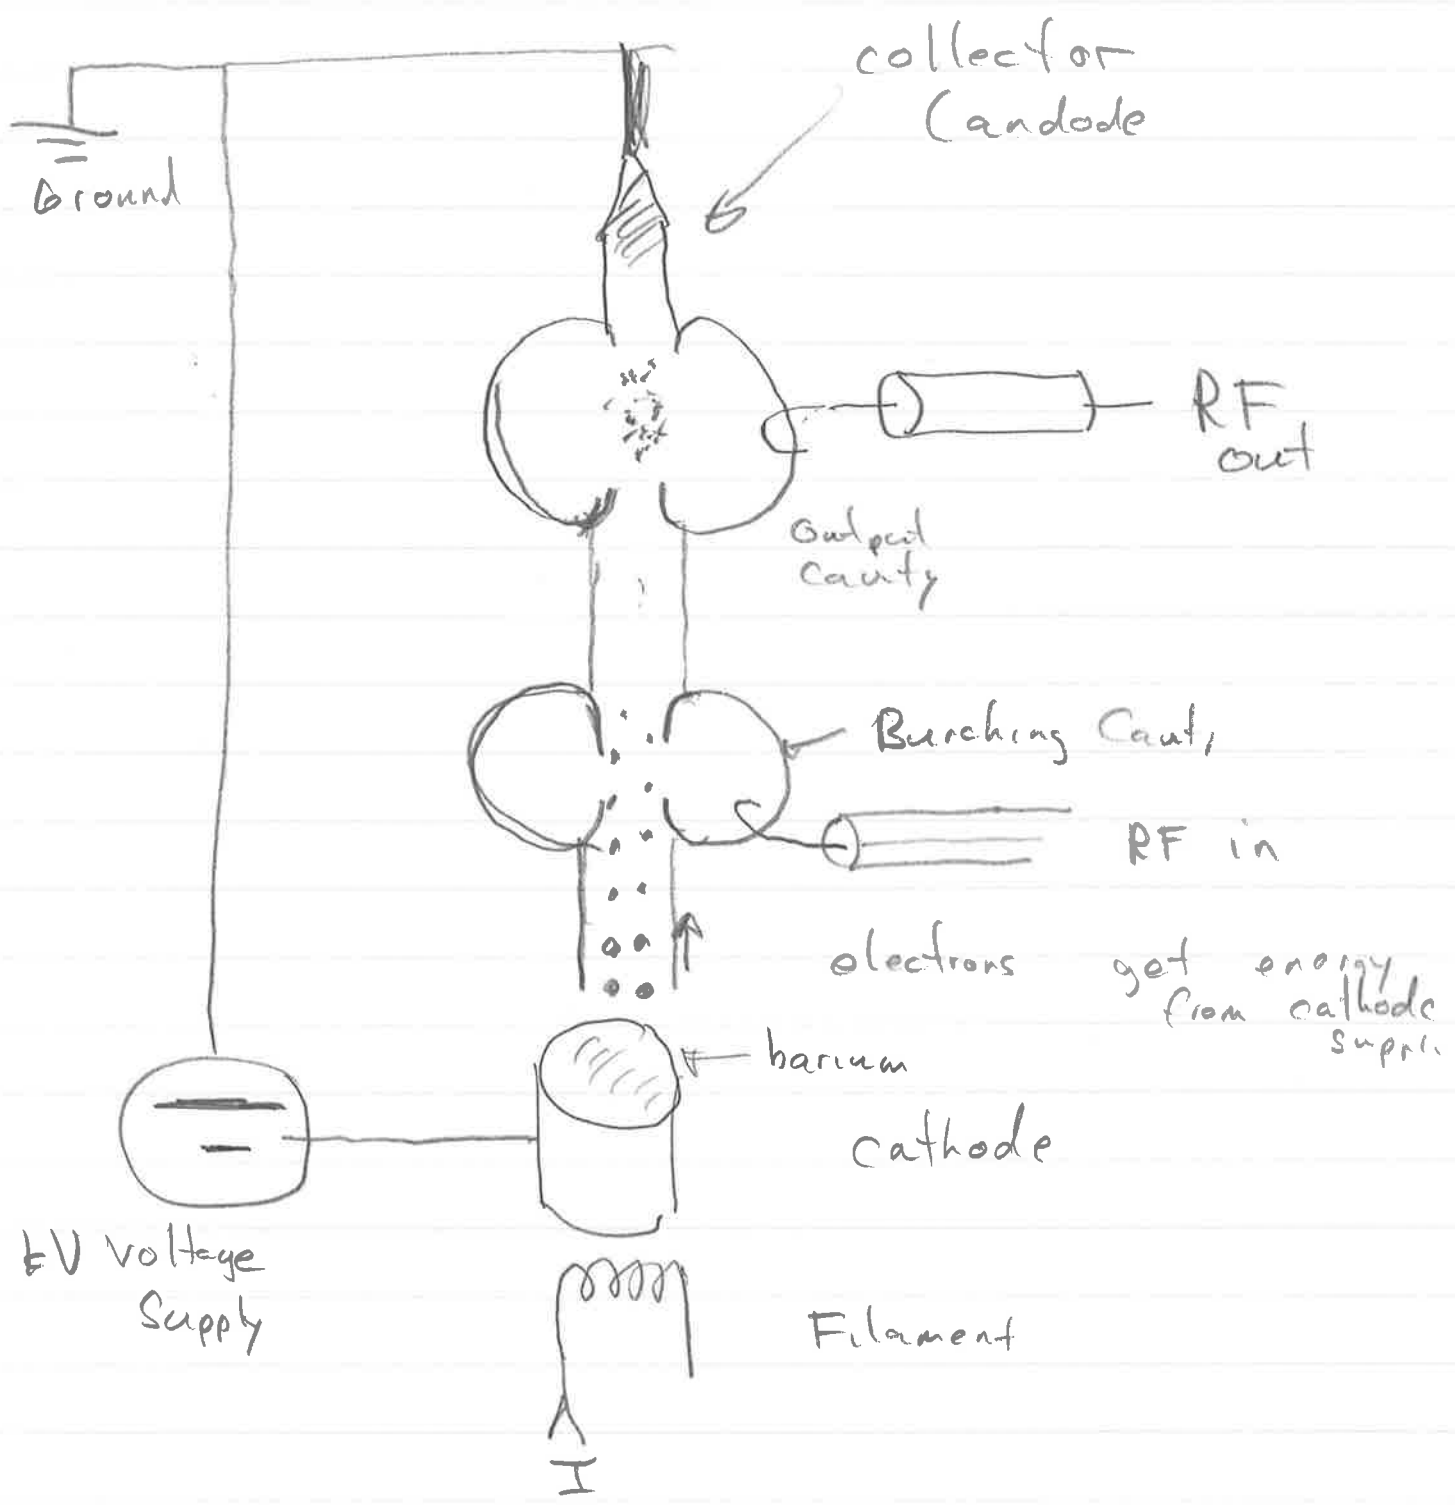 collector
(andode
Ground
RF
out
Output
Cavity
Bunching Cavt,
RF in
electrons get energy
from cathode
suppl.
barium
cathode
kV Voltage
Supply
Filament
I